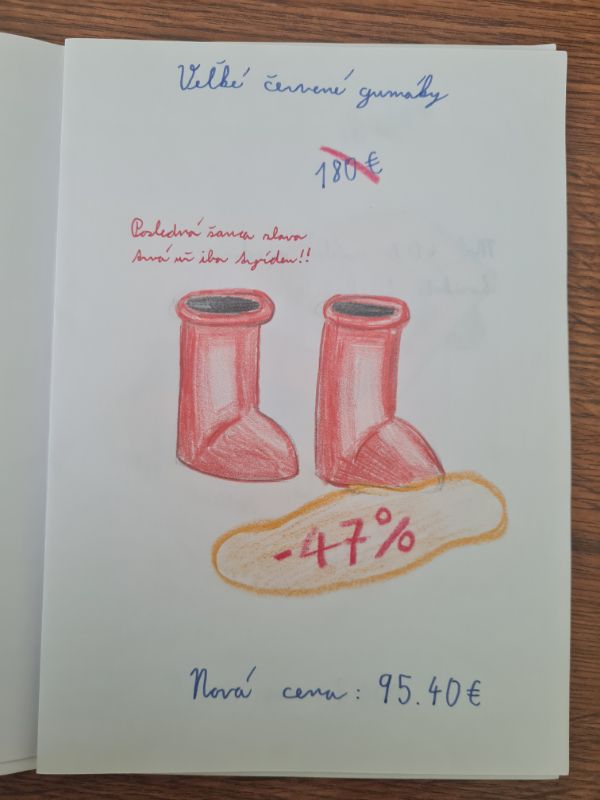 Veľké červené gumáky
180€
Posledná šanca zlava
trvá už iba týždeň!!
-47%
Nová cena: 95.40€